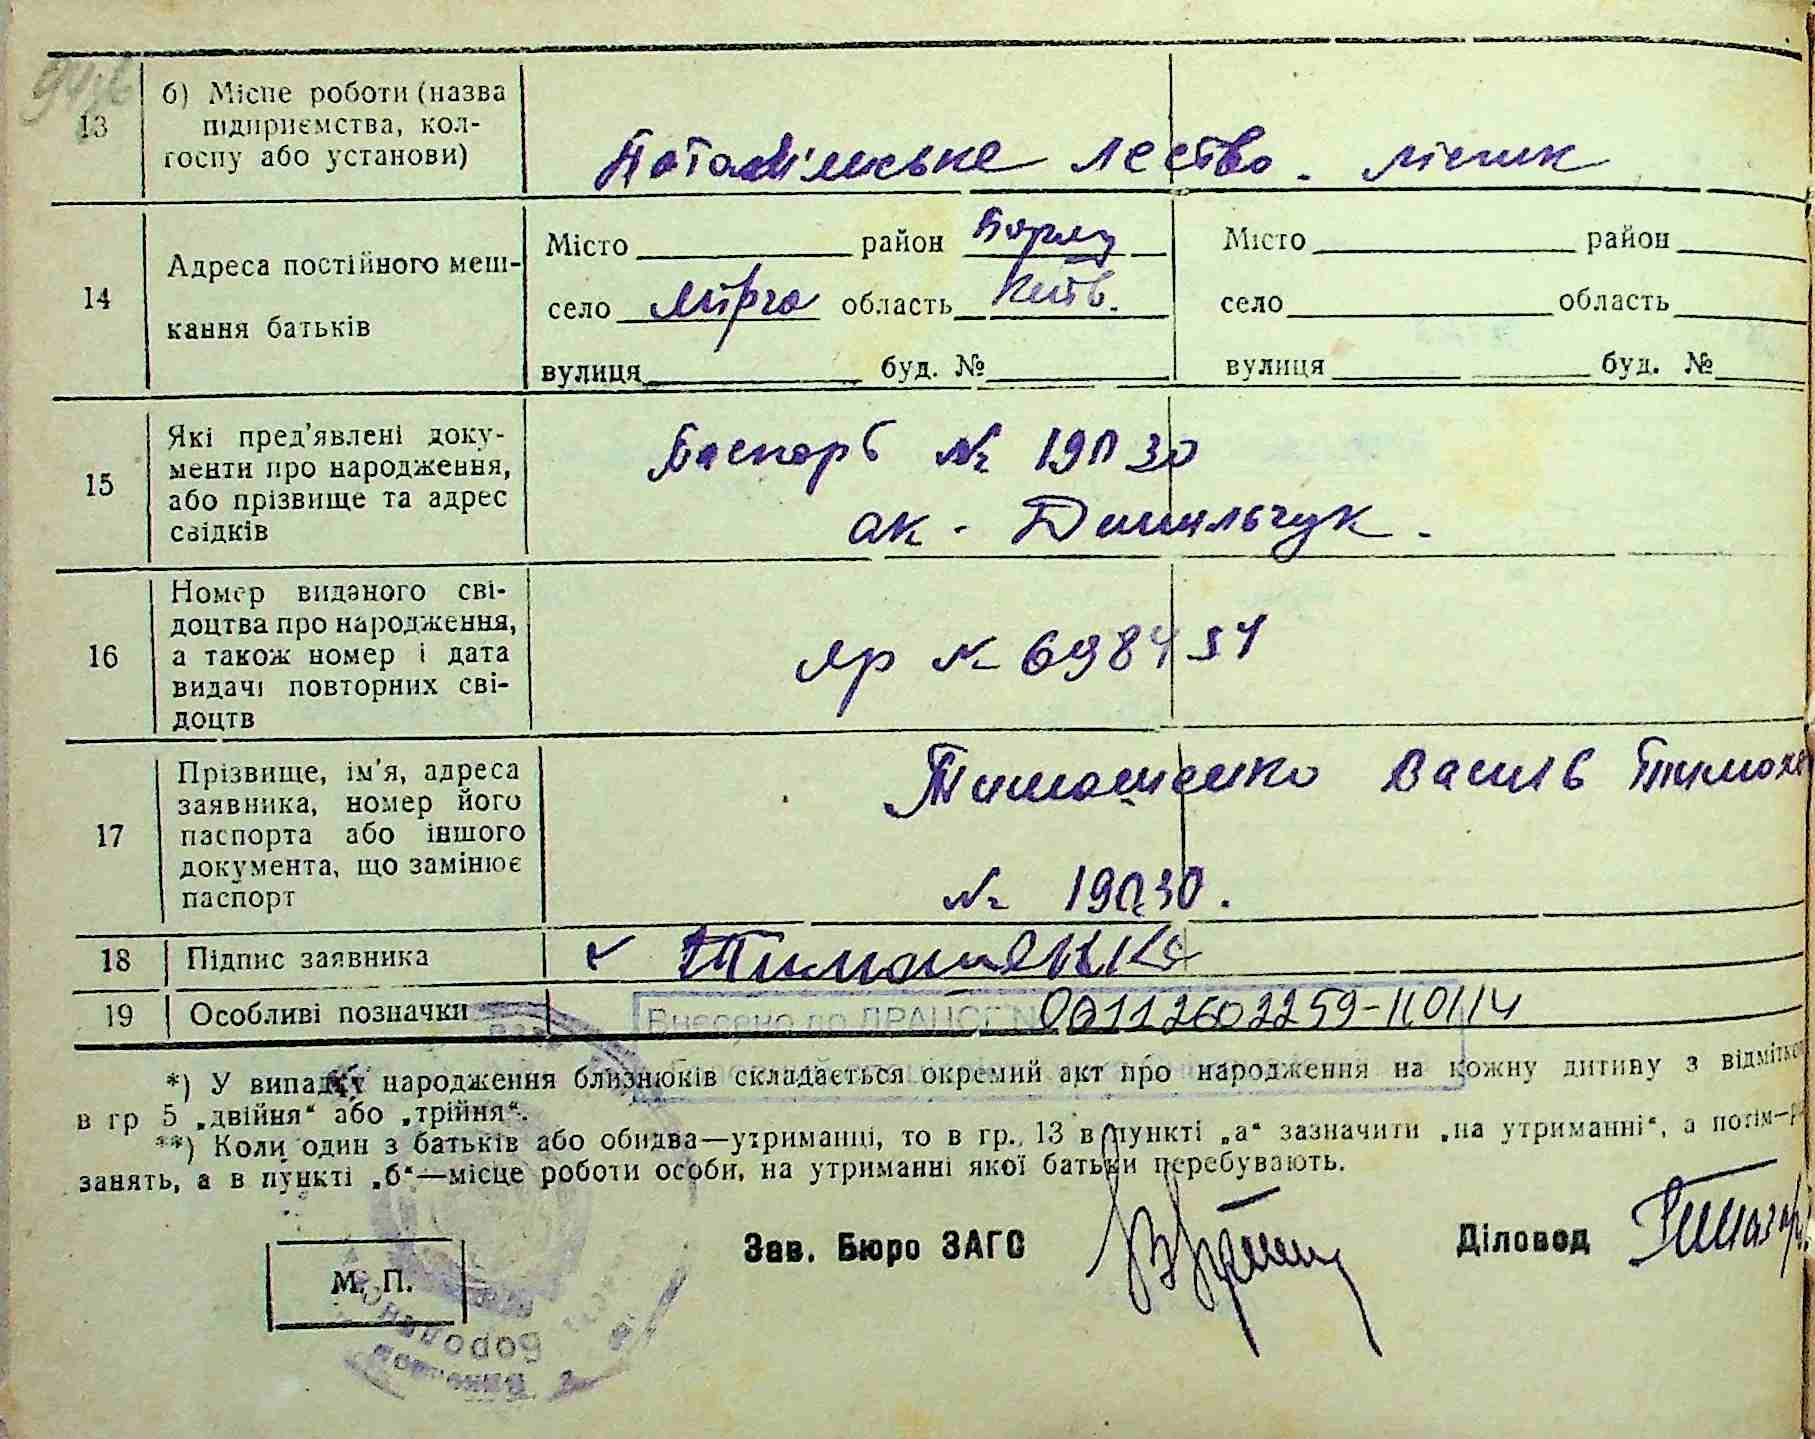 13
б) Місце роботи (назва
підприємства, кол-
госпу або установи)
лество. лісник
14
Адреса постійного меш-
кання батьків
Місто район
село Мирча область Київ.
вулиця буд. №
Місто район
село область
вулиця буд. №
15
Які пред'явлені доку-
менти про народження,
або прізвище та адрес
свідків
Паспорт №
16
Номер виданого сві-
доцтва про народження,
а також номер і дата
видачі повторних сві-
доцтв
яр № 698454
17
Прізвище, ім'я, адреса
заявника, номер його
паспорта або іншого
документа, що замінює
паспорт
Тимошенко Василь Тимохв
№
18 Підпис заявника
Тимошенко
19 Особливі позначки
Внесено до ДРАЦСГ № 00112602259-11.01.14
*) У випадку народження близнюків складається окремий акт про народження на кожну дитину з відміткою
в гр 5 „двійня“ або „трійня“.
**) Коли один з батьків або обидва—утриманці, то в гр. 13 в пункті „а“ зазначити „на утриманні“, а потім—р
занять, а в пункті „б“—місце роботи особи, на утриманні якої батьки перебувають.
Зав. Бюро ЗАГС
Діловод
М. П.